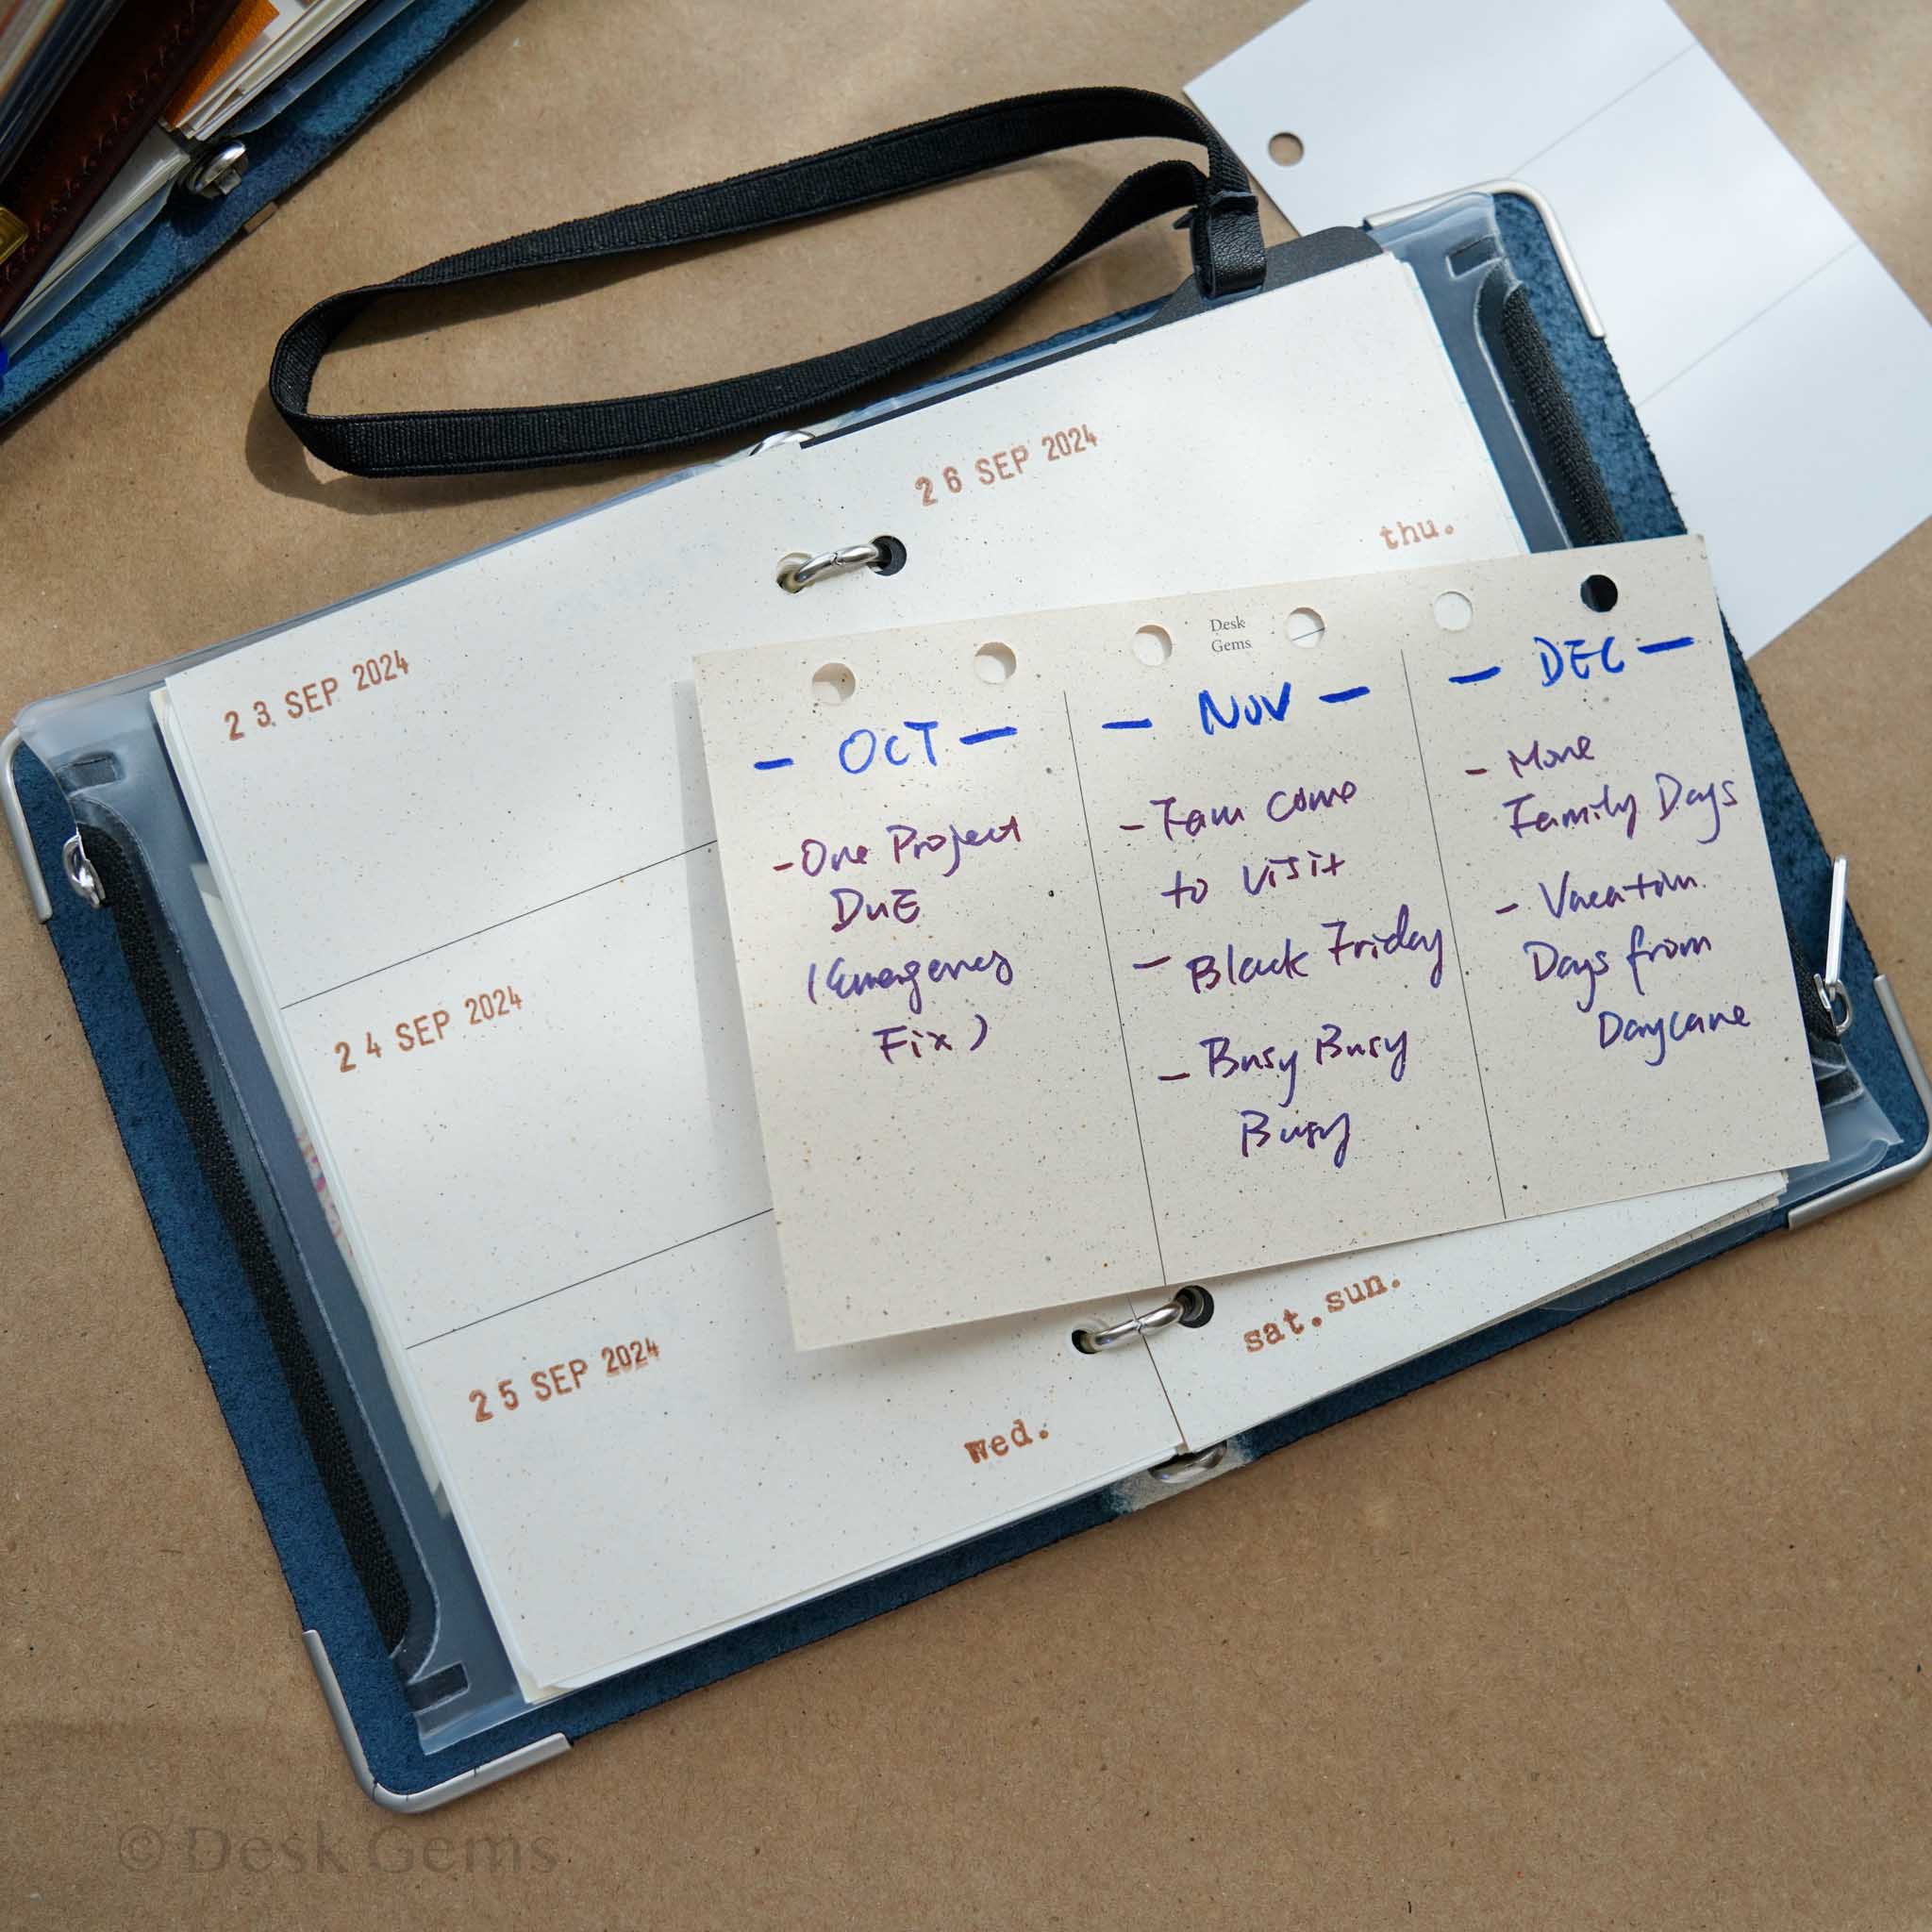 26 SEP 2024
thu.
23 SEP 2024
24 SEP 2024
25 SEP 2024
wed.
sat.sun.
Desk
Gems
- OCT -
- One Project
DuE
(Emergency
Fix)
- NOV -
- Fam come
to visit
- Black Friday
- Busy Busy
Busy
- DEC -
- More
Family Days
- Vacation
Days from
Daycare
© Desk Gems